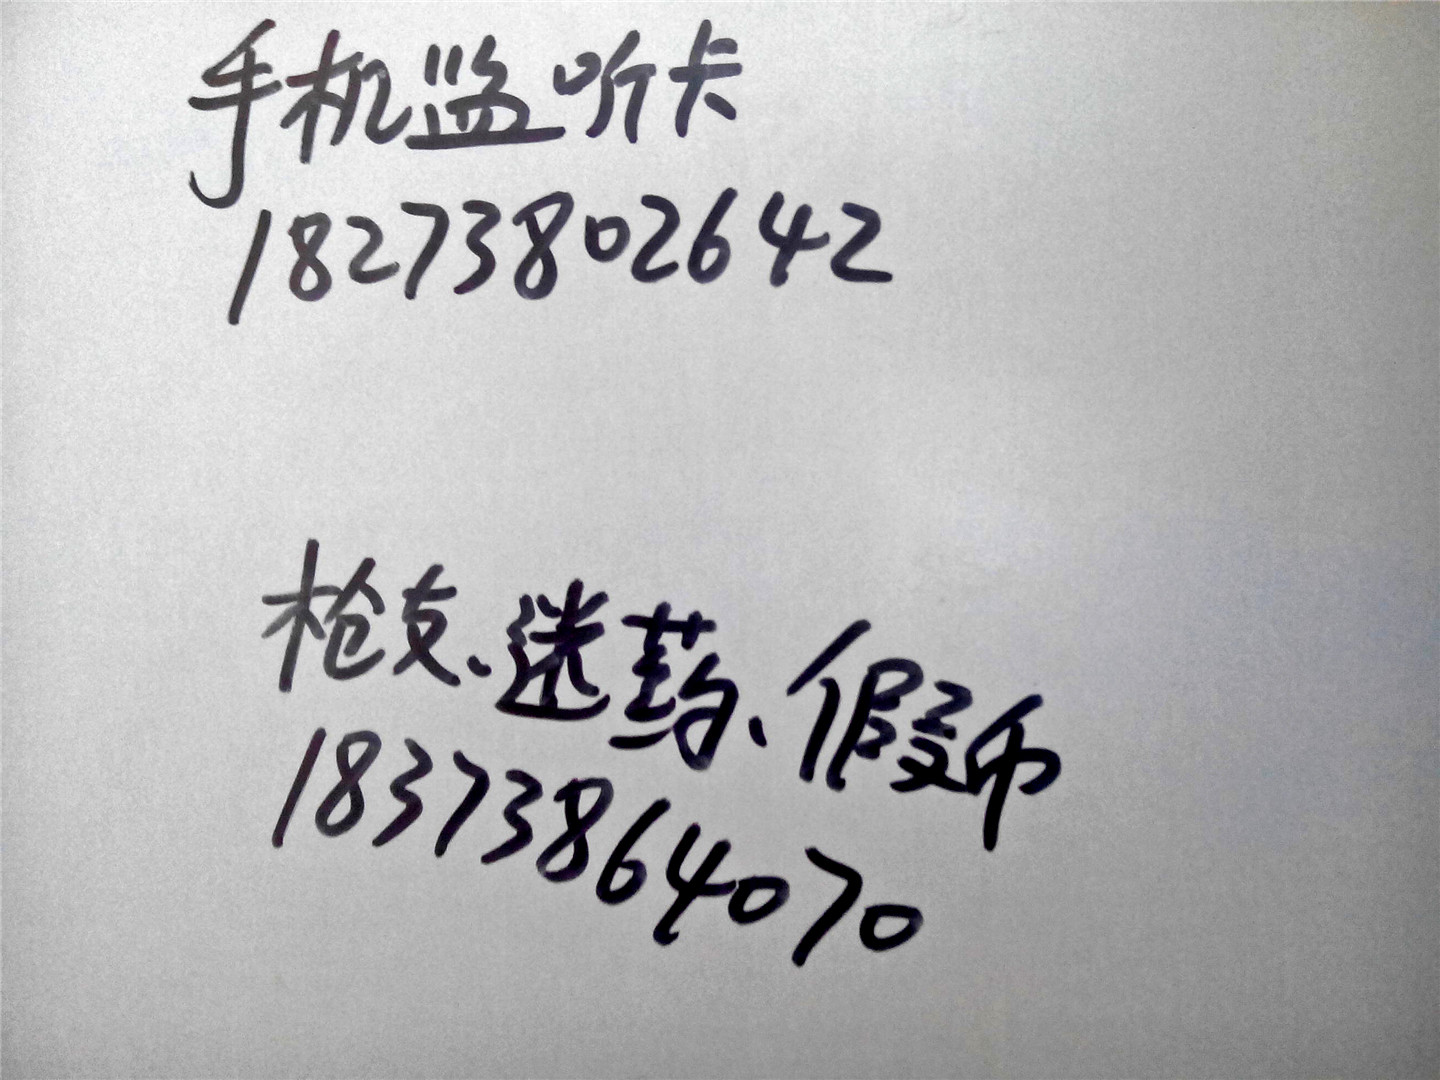 手机监听卡
18273802642
枪支、迷药、假币
18373864070